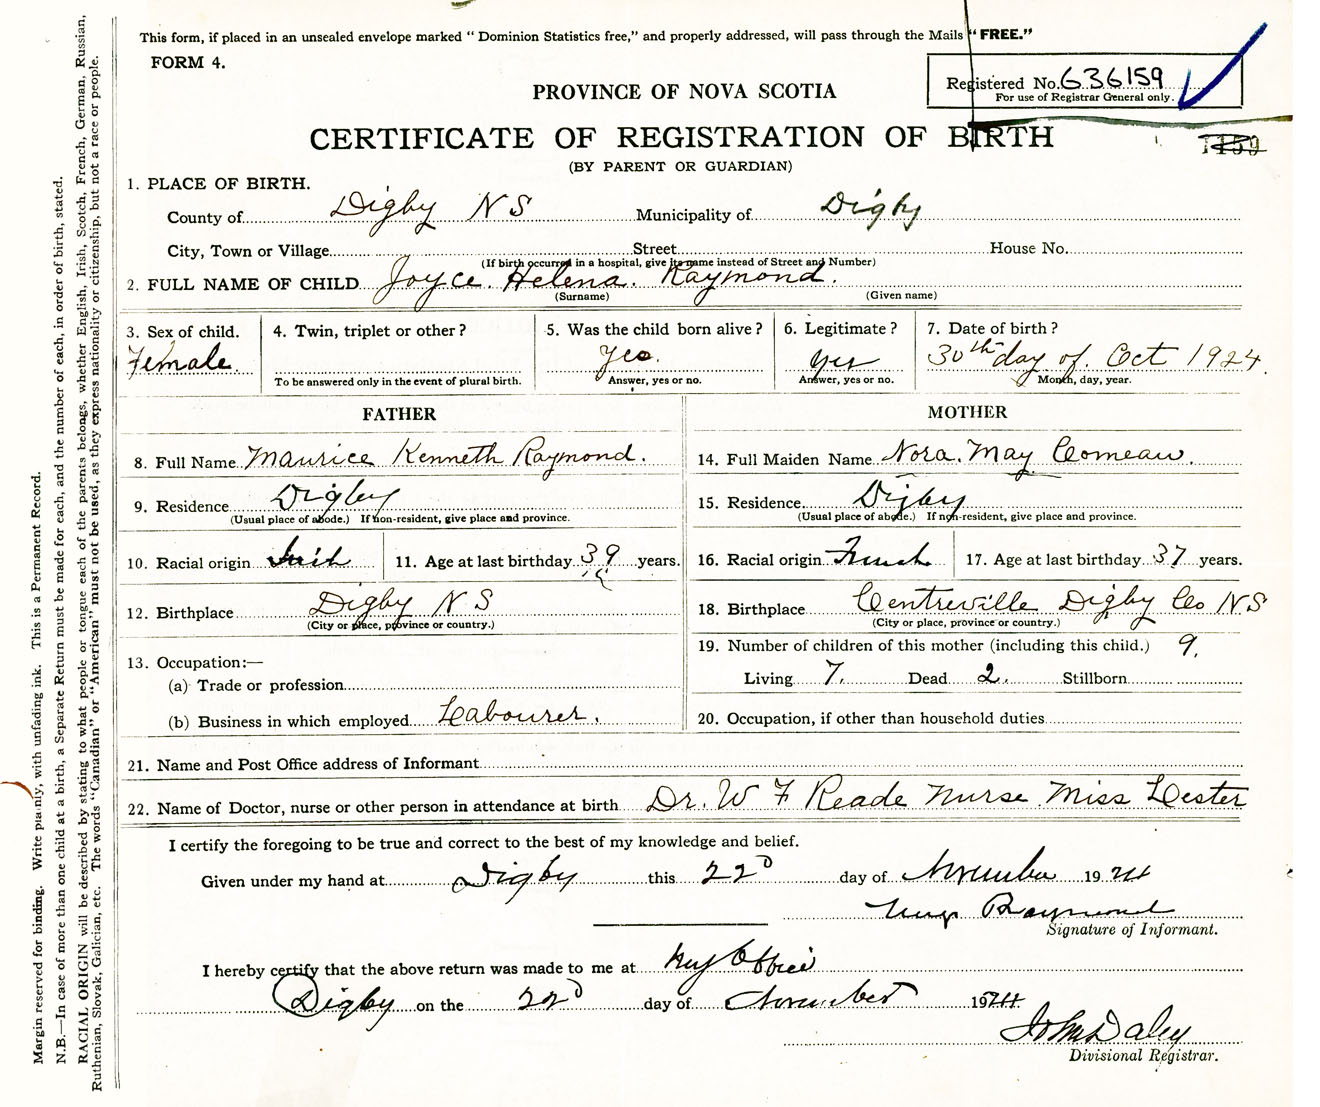 This form, if placed in an unsealed envelope marked “ Dominion Statistics free,” and properly addressed, will pass through the Mails “ FREE.”
FORM 4.
Registered No. 636159
For use of Registrar General only.
PROVINCE OF NOVA SCOTIA
CERTIFICATE OF REGISTRATION OF BIRTH
(BY PARENT OR GUARDIAN)
1. PLACE OF BIRTH.
County of Digby N S Municipality of Digby
City, Town or Village Street House No.
(If birth occurred in a hospital, give its name instead of Street and Number)
2. FULL NAME OF CHILD Joyce. Helena. Raymond.
(Surname) (Given name)
3. Sex of child. 4. Twin, triplet or other ? 5. Was the child born alive ? 6. Legitimate ? 7. Date of birth ?
Female Yes. yes 30th day of Oct 1924.
To be answered only in the event of plural birth. Answer, yes or no. Answer, yes or no. Month, day, year.
FATHER MOTHER
8. Full Name Maurice Kenneth Raymond. 14. Full Maiden Name Nora. May Comeau.
9. Residence Digby 15. Residence Digby
(Usual place of abode.) If non-resident, give place and province. (Usual place of abode.) If non-resident, give place and province.
10. Racial origin Irish 11. Age at last birthday 39 years. 16. Racial origin French 17. Age at last birthday 37 years.
12. Birthplace Digby N S 18. Birthplace Centreville Digby Co N.S
(City or place, province or country.) (City or place, province or country.)
13. Occupation:— 19. Number of children of this mother (including this child.) 9.
(a) Trade or profession Living 7. Dead 2. Stillborn
(b) Business in which employed Labourer. 20. Occupation, if other than household duties
21. Name and Post Office address of Informant
22. Name of Doctor, nurse or other person in attendance at birth Dr. W F Reade Nurse Miss Lester
I certify the foregoing to be true and correct to the best of my knowledge and belief.
Given under my hand at Digby this 22D day of November 1924
Raymond
Signature of Informant.
I hereby certify that the above return was made to me at my Office
Digby on the 22D day of November 1924
John Daley
Divisional Registrar.
Margin reserved for binding. Write plainly, with unfading ink. This is a Permanent Record.
N.B.—In case of more than one child at a birth, a Separate Return must be made for each, and the number of each, in order of birth, stated.
RACIAL ORIGIN will be described by stating to what people or tongue each of the parents belongs, whether English, Irish, Scotch, French, German, Russian,
Ruthenian, Slovak, Galician, etc. The words “Canadian” or “American” must not be used, as they express nationality or citizenship, but not a race or people.